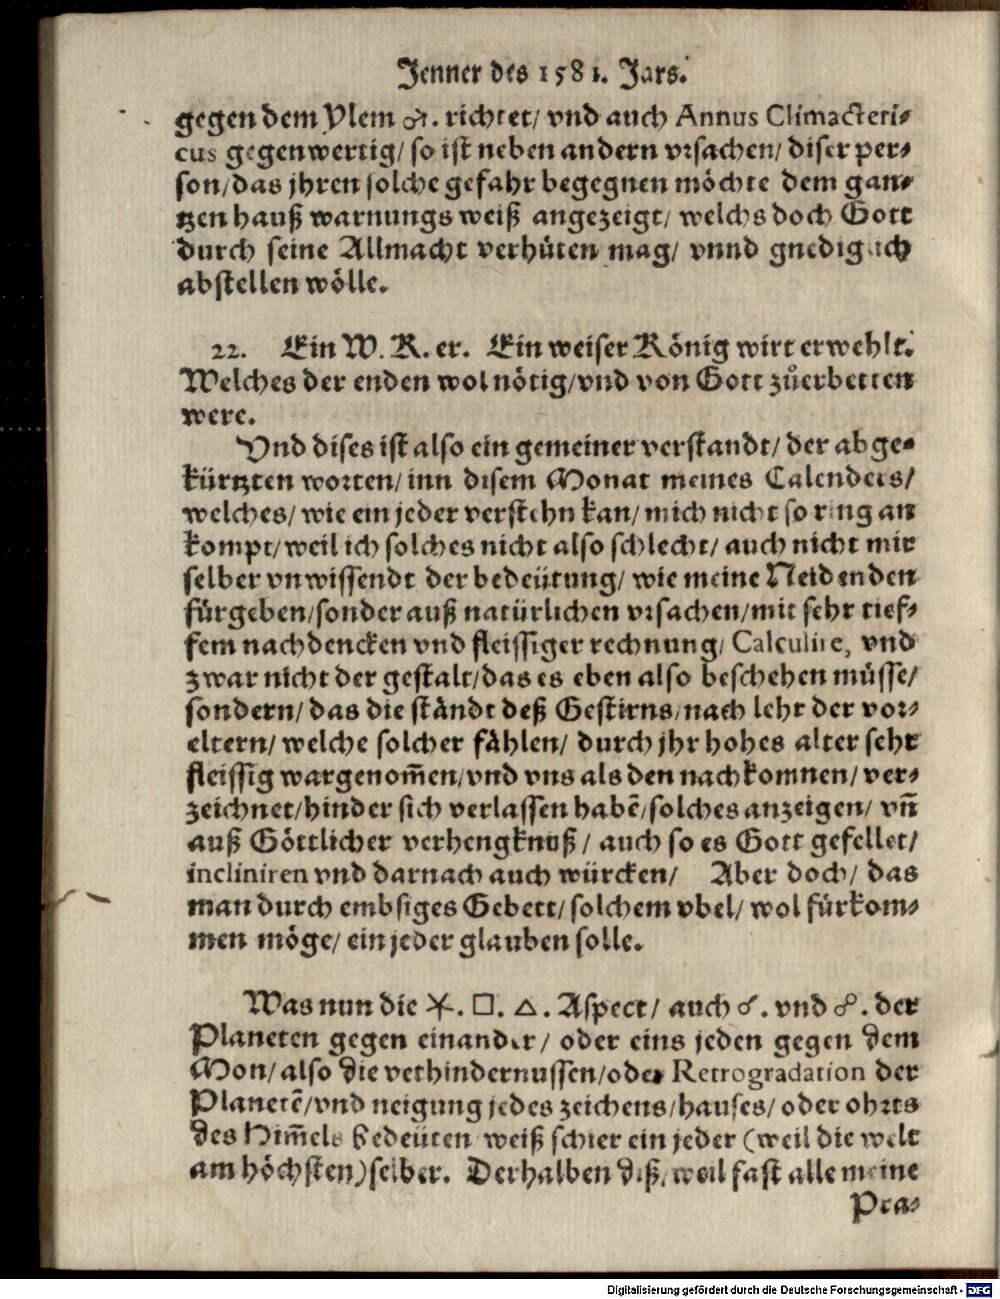 Jenner des 1581. Jars.
gegen dem Ylem ♂. richtet/ vnd auch Annus Climacteri⸗
cus gegenwertig/ so ist neben andern vrsachen/ diser per⸗
son/ das jhren solche gefahr begegnen möchte dem gan⸗
tzen hauß warnungs weiß angezeigt/ welchs doch Gott
durch seine Allmacht verhüten mag/ vnnd gnediglich
abstellen wölle.
22. Ein W. R. er. Ein weiser König wirt erwehlt.
Welches der enden wol nötig/ vnd von Gott zůerbetten
were.
Vnd dises ist also ein gemeiner verstandt/ der abge⸗
kürtzten worten/ inn disem Monat meines Calenders/
welches/ wie ein jeder verstehn kan/ mich nicht so ring an
kompt/ weil ich solches nicht also schlecht/ auch nicht mir
selber vnwissendt der bedeütung/ wie meine Neidenden
fürgeben/ sonder auß natürlichen vrsachen/ mit sehr tief⸗
fem nachdencken vnd fleissiger rechnung/ Calculire, vnd
zwar nicht der gestalt/ das es eben also beschehen müsse/
sondern/ das die ständt deß Gestirns/ nach lehr der vor⸗
eltern/ welche solcher fählen/ durch jhr hohes alter sehr
fleissig wargenom̃en/ vnd vns als den nachkomnen/ ver⸗
zeichnet/ hinder sich verlassen habẽ/ solches anzeigen/ vñ
auß Göttlicher verhengknuß/ auch so es Gott gefellet/
incliniren vnd darnach auch würcken/ Aber doch/ das
man durch embsiges Gebett/ solchem vbel/ wol fürkom⸗
men möge/ ein jeder glauben solle.
Was nun die ⚹. □. △. Aspect/ auch ☌. vnd ☍. der
Planeten gegen einander/ oder eins jeden gegen dem
Mon/ also die verhindernussen/ oder Retrogradation der
Planetẽ/ vnd neigung jedes zeichens/ hauses/ oder ohrts
des Him̃els bedeüten weiß schier ein jeder (weil die welt
am höchsten) selber. Derhalben diß/ weil fast alle meine
Pra⸗
Digitalisierung gefördert durch die Deutsche Forschungsgemeinschaft - DFG